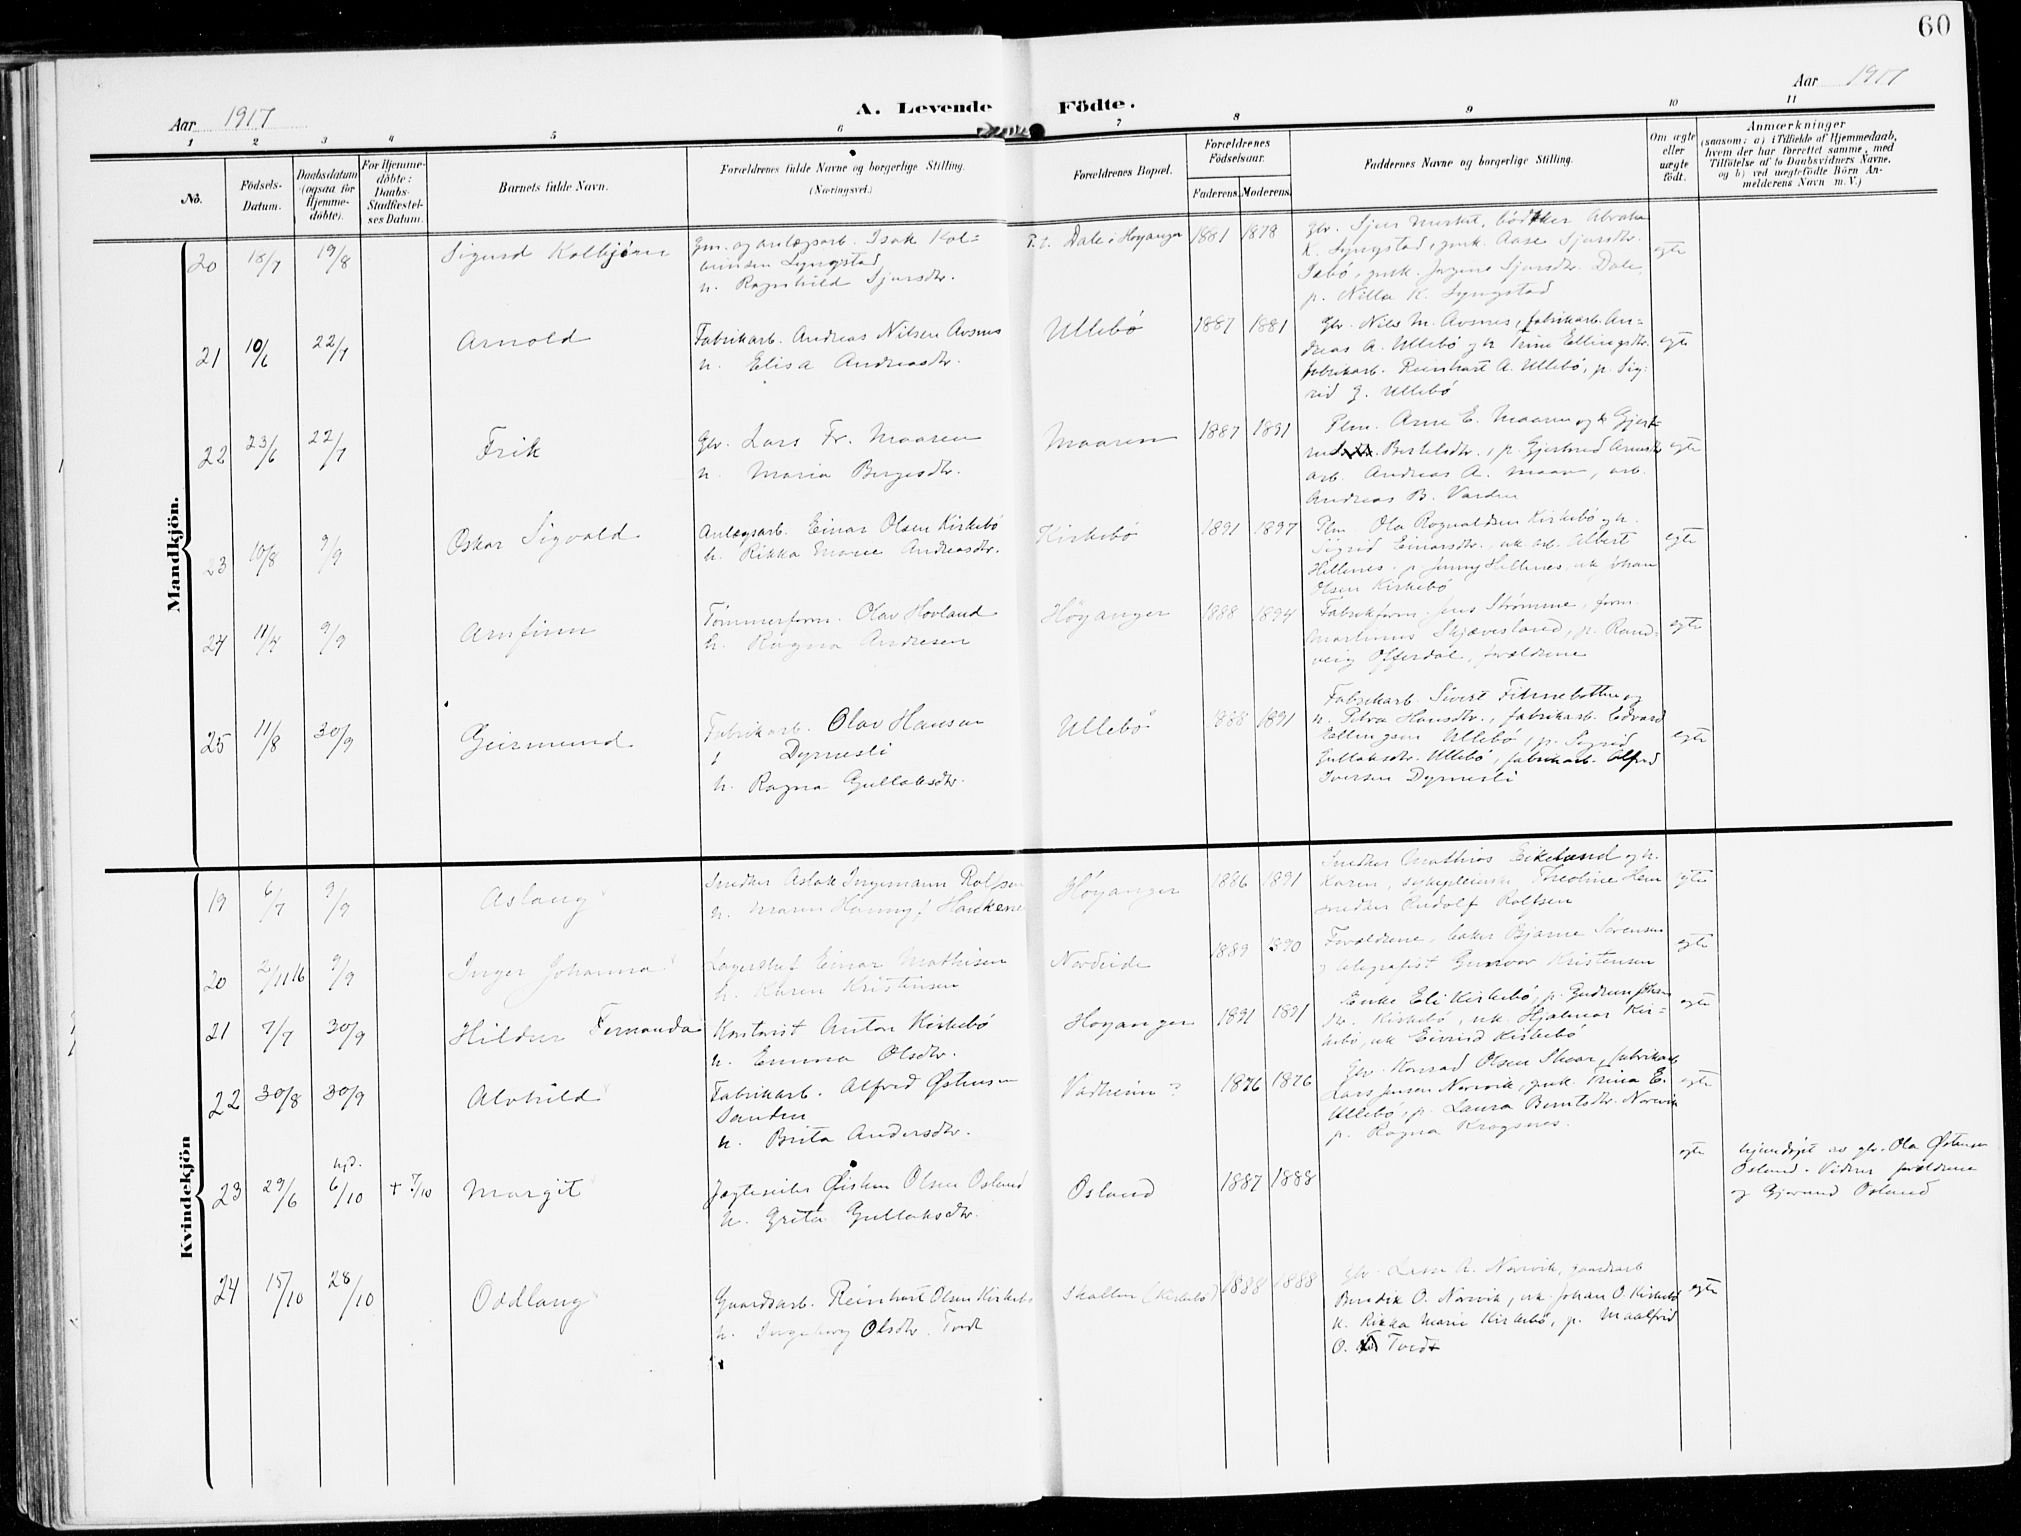 60
Aar 1917
A. Levende Födte.
Aar 1917
1 2 3 4 5 6 7 8 9 10 11
No.
Födsels-
Datum.
Daabsdatum
(ogsaa for
Hjemme-
döbte).
For Hjemme-
döbte:
Daabs-
Stadfæstel-
ses Datum.
Barnets fulde Navn.
Forældrenes fulde Navne og borgerlige Stilling.
(Næringsvei.)
Forældrenes Bopæl.
Forældrenes
Födselsaar.
Faderens. Moderens.
Faddernes Navne og borgerlige Stilling.
Om ægte
eller
uægte
födt.
Anmærkninger
(saasom: a) i Tilfælde af Hjemmedaab,
hvem der har forrettet samme, med
Tilföielse af to Daabsvidners Navne,
og b) ved uægtefödte Börn An-
melderens Navn m. V.)
Mandkjön.
20 18/7 19/8 Sigurd Kolbjörn
Gm. og anlægsarb. Isak Kol=
Lyngstad
h. Ragnhild Sjursdtr.
P. t. Dale i Höyanger 1881 1878
K. Lyngstad, gmk. Aase Sjursdtr.
Tebö, gmk. Jørgine Sjursdtr. Dale,
p. Nilla K. Lyngstad
egte
21 10/6 22/7 Arnold
Fabrikarb. Andreas Nilsen Avsnes
h. Elisa Andreasdtr.
Ullebö 1887 1881
Gbr. Nils M. Avsnes, fabrikarb. An=
dreas A. Ullebö og h. Trine Ellingsdtr.
fabrikarb. Reinhart A. Ullebö, p. Sig=
rid G. Ullebö
egte
22 23/6 22/7 Frik
Gbr. Lars Fr. Maaren
h. Maria Børgesdtr.
Maaren 1887 1891
Plm. Arne E. Maaren og h. Gjert=
rud Bertelsdtr., p. Gjertrud Arnesdtr.
arb. Andreas A. Maaren, arb.
Andreas B. Varden
egte
23 19/8 9/9 Oskar Sigvald
Anlægsarb. Einar Olsen Kirkebö
h. Rikka Marie Andreasdtr.
Kirkebö 1891 1897
Plm. Ola Rognaldsen Kirkebö og h.
Sigrid Einarsdtr., uk. arb. Albert
Hellenes, p. Jenny Hellenes, uk. Johan
Olsen Kirkebö
egte
24 11/4 9/9 Arnfinn
Tømmerform. Olav Hovland
h. Ragna Andresen
Höyanger 1888 1894
Fabrikform. Jens Strømme, form.
Martinus Skjævesland, p. Rand=
veig Offerdal, forældrene
egte
25 11/8 30/9 Geirmund
Fabrikarb. Olav Hansen
Dyrnesli
h. Ragna Gullaksdtr.
Ullebö 1888 1891
Fabrikarb. Sivert Finnebotten og
h. Petra Hansdtr., fabrikarb. Edvard
Ellingsen Ullebö, p. Sigrid
Gullaksdtr. Ullebö, fabrikarb. Alfred
Iversen Dyrnesli
egte
Kvindekjön
19 6/7 9/9 Aslaug
Snedker Aslak Ingemann Rolfsen
h. Maren Hanny f. Haukenes
Höyanger 1886 1891
Snedker Mathias Eikeland og h.
Karen, sykepleierske Theoline Hem
snedker Rudolf Rolfsen
egte
20 2/11 16 9/9 Inger Johanna
Lagerchef Einar Mathisen
h. Karen Kristensen
Nordeide 1889 1890
Forældrene, baker Bjarne Sörensen
og telegrafist Gunvor Kristensen
egte
21 7/7 30/9 Hildur Fernanda
Kontorist Anton Kirkebö
h. Emma Olsdtr.
Hoyanger 1891 1891
Enke Eli Kirkebö, p. Gudrun Johans
dtr. Kirkebö, uk. Hjalmar Kir=
kebö, uk. Eivind Kirkebö
egte
22 30/8 30/9 Alvhild
Fabrikarb. Alfred Østensen
Sanden
h. Brita Andersdtr.
Vadheim? 1876 1876
Gbr. Konrad Olsen Skaar, fabrikarb.
Lars Jensen Norevik, gmk. Trina E.
Ullebö, p. Laura Berntsdtr. Norevik
p. Ragna Krogsnes.
egte
23 29/6 hjd. 6/10 + 7/10 Margit
Jægteseiler Østen Olsen Osland
h. Grita Gullaksdtr.
Osland 1887 1888
egte
hjemdöpt av gbr. Ola Østensen
Osland. Vidner forældrene
og Gjertrud Osland
24 15/10 28/10 Oddlaug
Gaardsarb. Reinhart Olsen Kirkebö
h. Ingeborg Olsdtr. Tvedt
Skallen (Kirkebö) 1888 1888
Gbr. Lasse A. Norevik, gaardsarb.
Bendik O. Norevik, uk. Johan O. Kirkebö
k. Rikka Marie Kirkebö, p. Maalfrid
O. Tvedt
egte